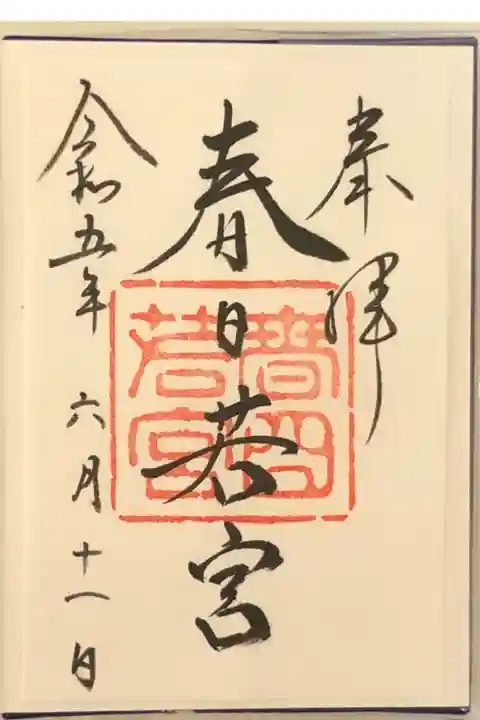 奉拝
春日若宮
令和五年 六月十八日
春日
若宮